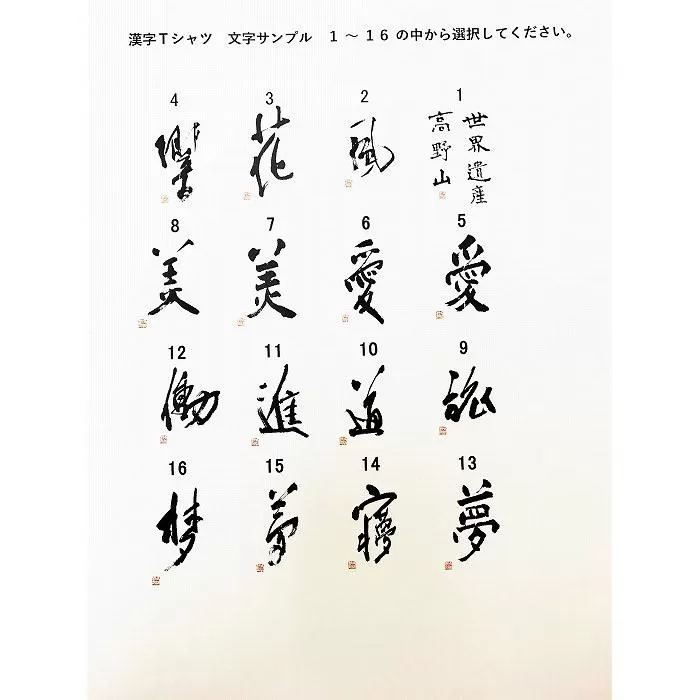 漢字Tシャツ 文字サンプル 1～16の中から選択してください。
1
世界遺産
高野山
2
風
3
花
4
響
5
愛
6
愛
7
美
8
美
9
10
道
11
進
12
働
13
夢
14
15
夢
16
梦